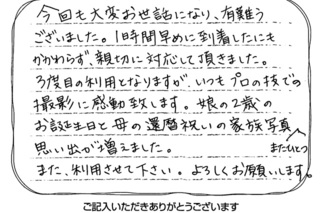 今回も大変お世話になり、有難う
ございました。1時間早めに到着したにも
かかわらず、親切に対応して頂きました。
3度目の利用となりますが、いつもプロの技での
撮影に感動致します。娘の2歳の
お誕生日と母の還暦祝いの家族写真
またひとつ
思い出が増えました。
また、利用させて下さい。よろしくお願いします。
ご記入いただきありがとうございます